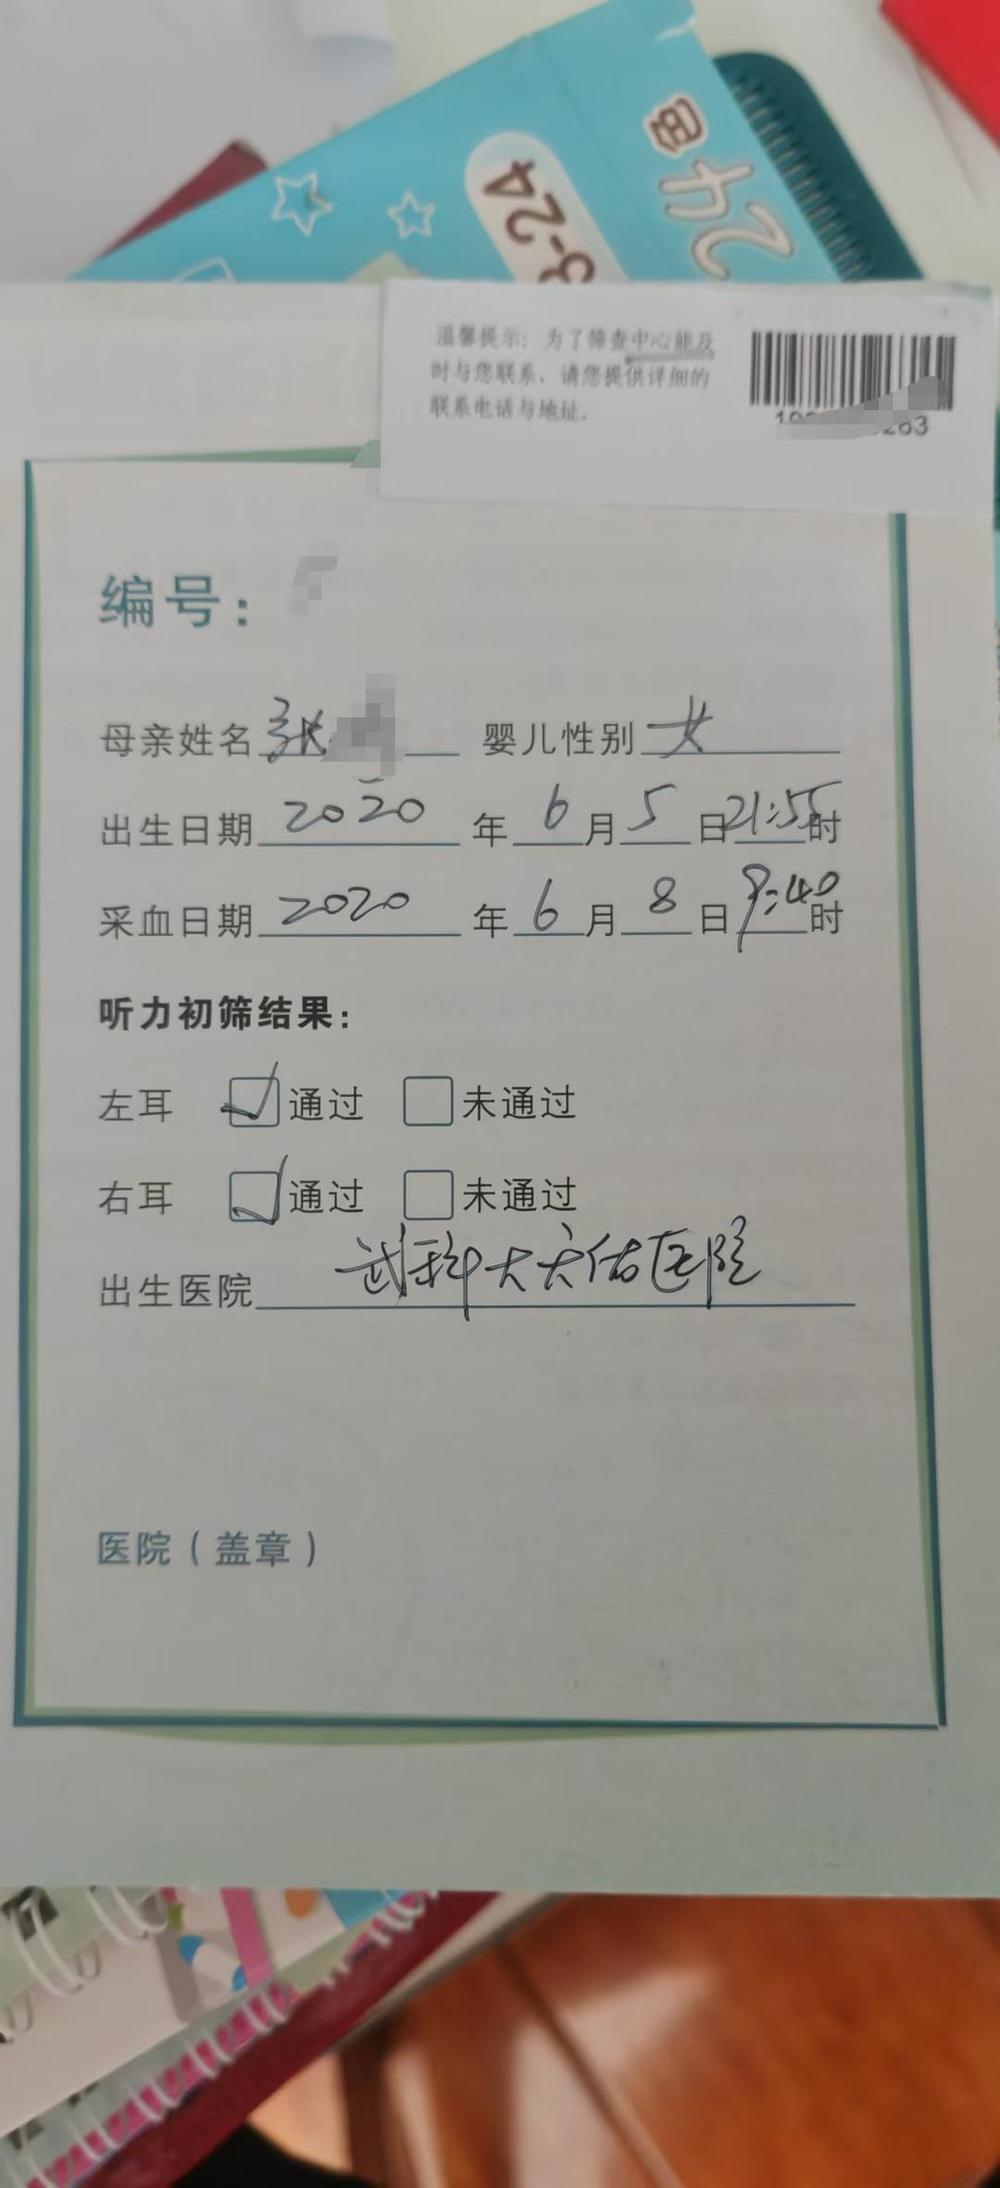 3-24
温馨提示：为了筛查中心能及
时与您联系，请您提供详细的
联系电话与地址.
263
编号：
母亲姓名 张 婴儿性别 女
出生日期 2020 年 6 月 5 日 21:55 时
采血日期 2020 年 6 月 8 日 9:40 时
听力初筛结果：
左耳 ☑通过 □未通过
右耳 ☑通过 □未通过
出生医院 武科大天佑医院
医院（盖章）